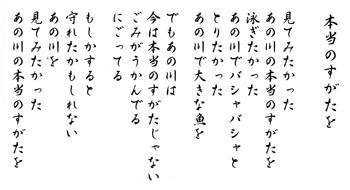 本当のすがたを
見てみたかった
あの川の本当のすがたを
泳ぎたかった
あの川でバシャバシャと
とりたかった
あの川で大きな魚を
でもあの川は
今は本当のすがたじゃない
ごみがうかんでる
にごってる
もしかすると
守れたかもしれない
あの川を
見てみたかった
あの川の本当のすがたを